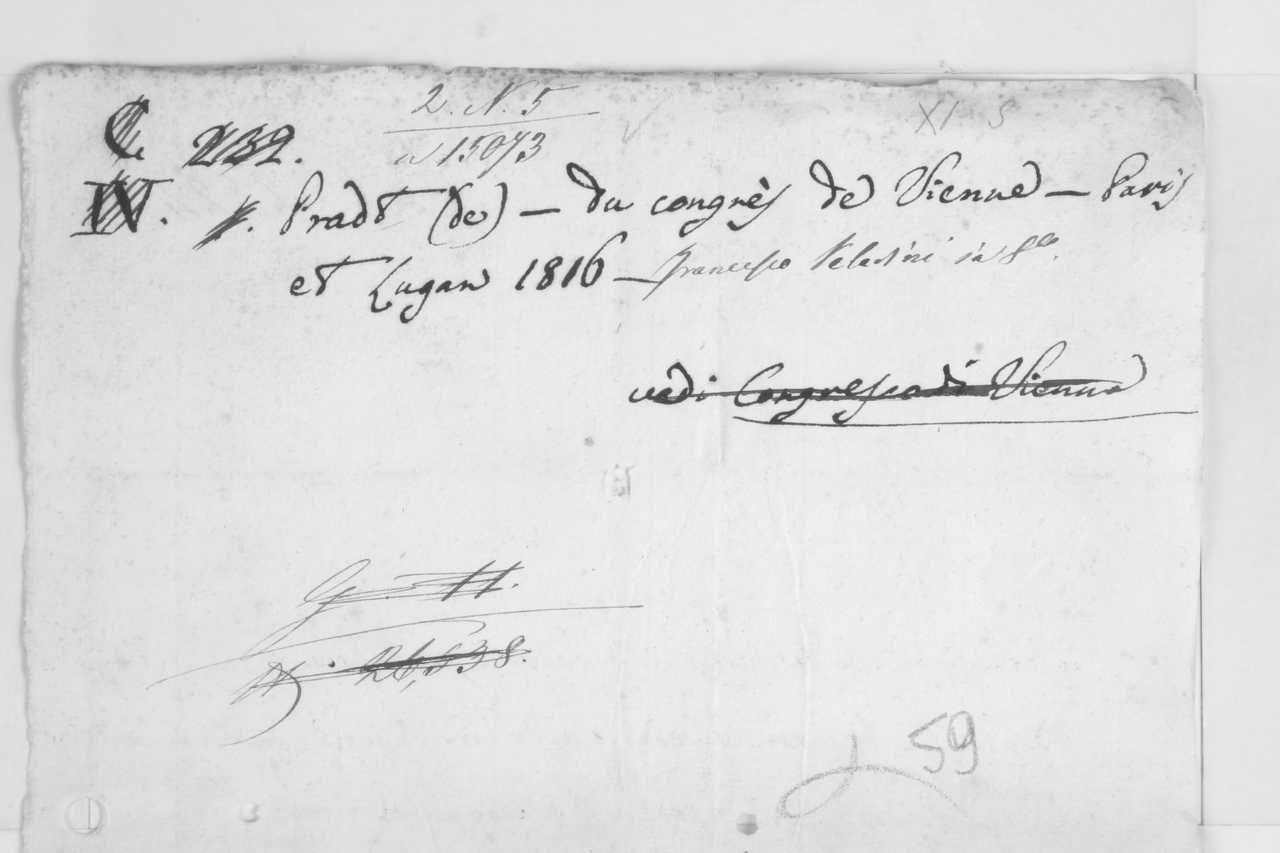 2. N. 5
15073
XI 5
C. 232.
IV. Pradt (de) — du congrès de Vienne — Paris
et Lugan 1816 — Francesco Veladini in 8º.
vedi Congresso di Vienna
G. H.
N. 26,838.
59